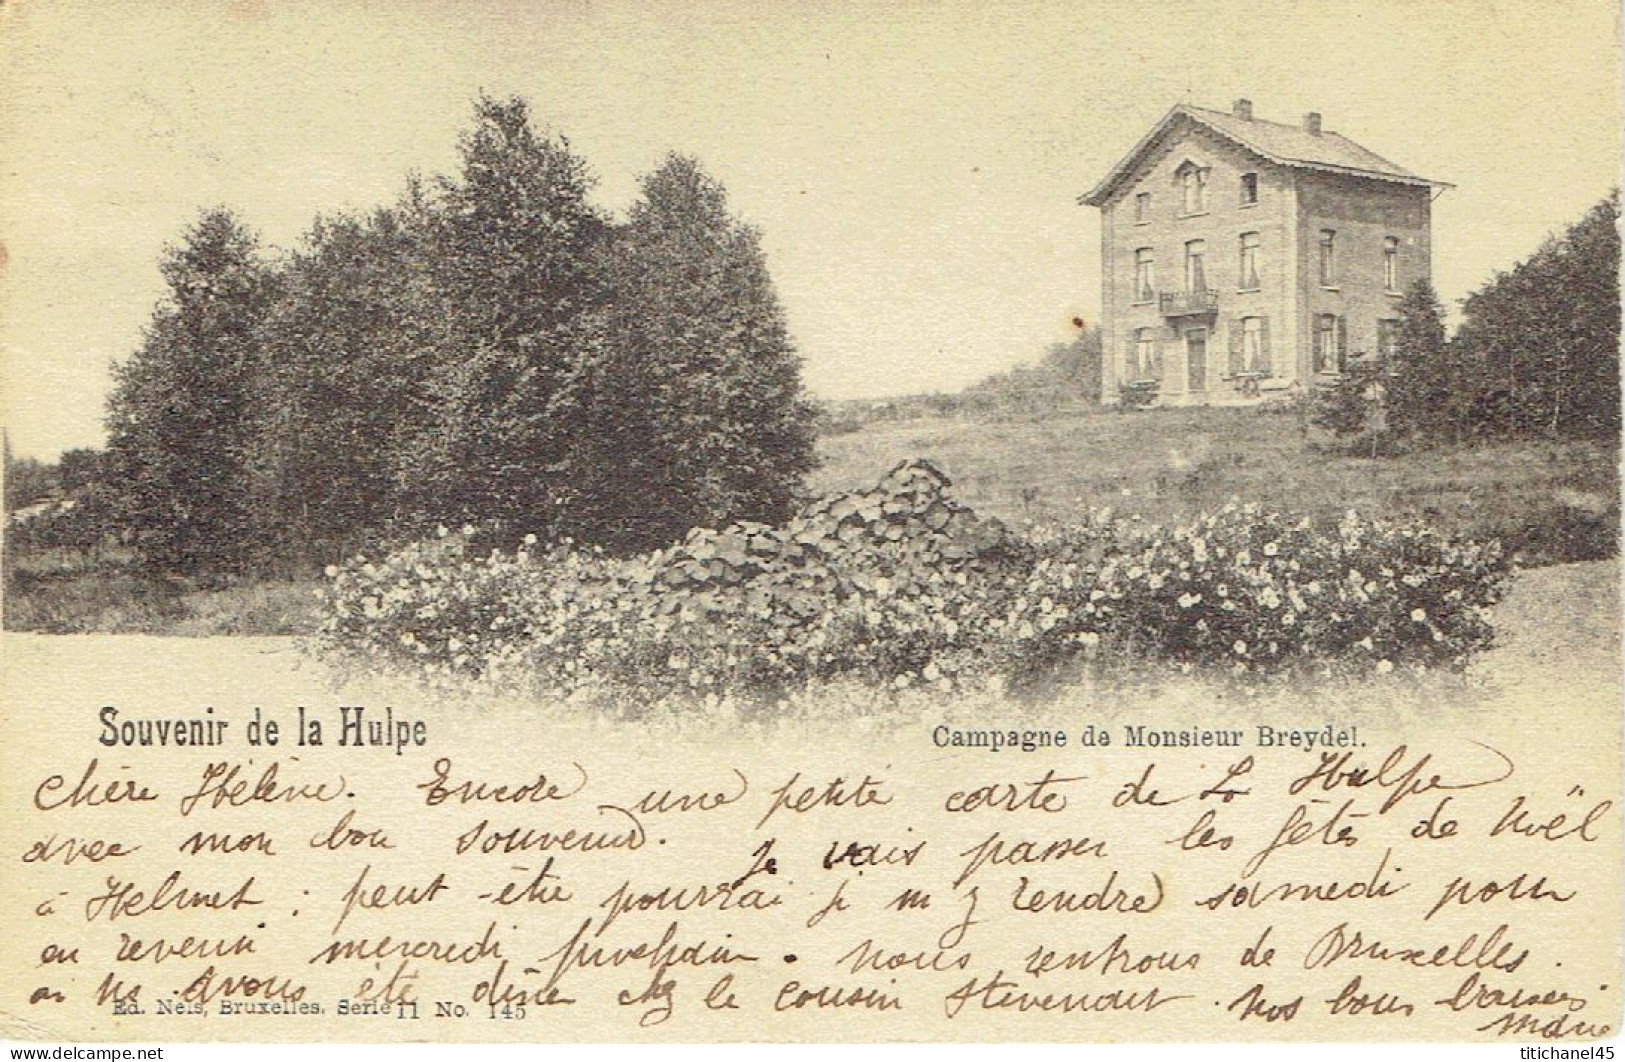 Souvenir de la Hulpe
Campagne de Monsieur Breydel.
Chère Hélène. Encore une petite carte de La Hulpe
avec mon bon souvenir. Je vais passer les fêtes de Noël
à Helmet ; peut-être pourrai je m'y rendre samedi pour
en revenir mercredi prochain. Nous rentrons de Bruxelles.
où ns. avons été dîner chez le cousin Stevenart. Nos bons baisers
Marie
Ed. Nels, Bruxelles. Serie 11 No. 145
titichanel45